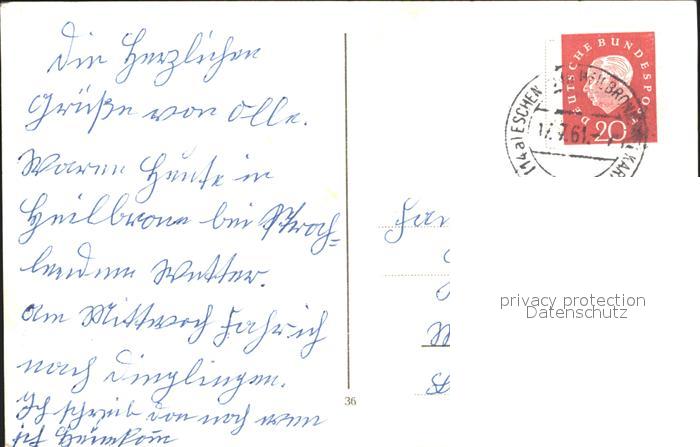 Die Herzlichen
Grüße von Olle.
Waren Heute in
Heilbronn bei Strah-
lendem Wetter.
Am Mittwoch Fahr ich
nach Dinglingen.
Ich schreib dan noch wen
ich Heimkom
Fa
36
DEUTSCHE BUNDESPOST
20
(14a) ESCHEN
HEILBRONN
17.7.61.
privacy protection
Datenschutz